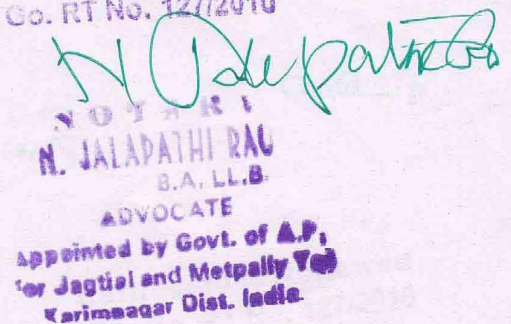 Go. RT No. 127/2010
N Jalapathi Rao
NOTARY
N. JALAPATHI RAO
B.A. LL.B.
ADVOCATE
Appointed by Govt. of A.P,
for Jagtial and Metpally
Karimnagar Dist. India.